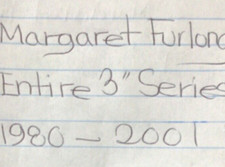 Margaret Furlong
Entire 3" Series
1980 – 2001